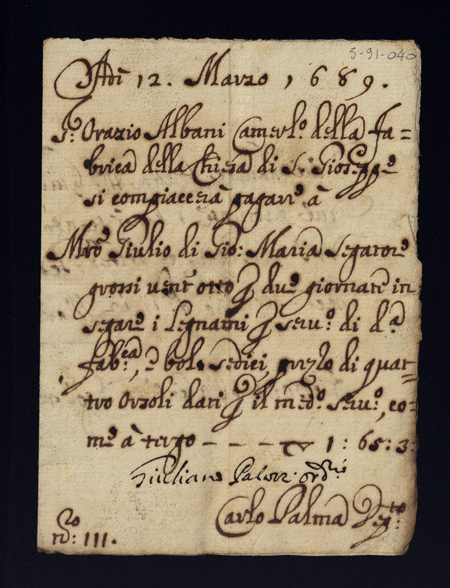 5-91-040
Adì 12. Marzo 1689.
S.r Orazio Albani Camerl.o della Fa=
brica della Chiesa di S. Gioseppe
si compiacerà pagare à
Mro Giulio di Gio: Maria Segatore
grossi vent'otto p due giornate in
segare i Legnami p serv.o di d.a
fab.ca, è bol. sedici, prezzo di quat=
tro Orzoli dati p il med.o serv.o, co=
me à tergo - - - - 1:65:3:
Giuliano ord.rio
Carlo Palma Deg.to
N.ro: 111.